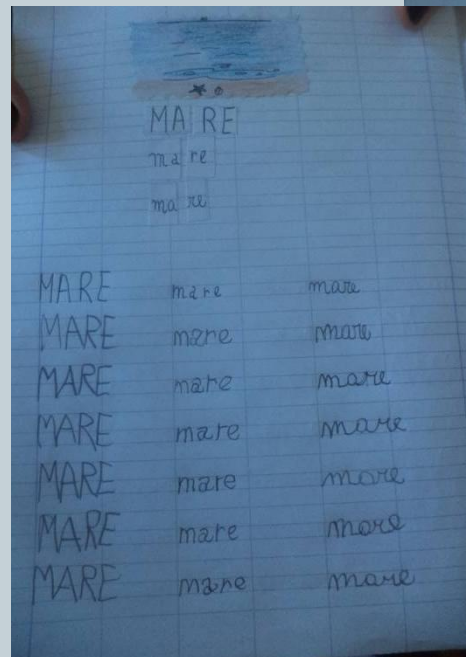 MARE
mare
mare
MARE mare mare
MARE mare mare
MARE mare mare
MARE mare mare
MARE mare mare
MARE mare mare
MARE mare mare